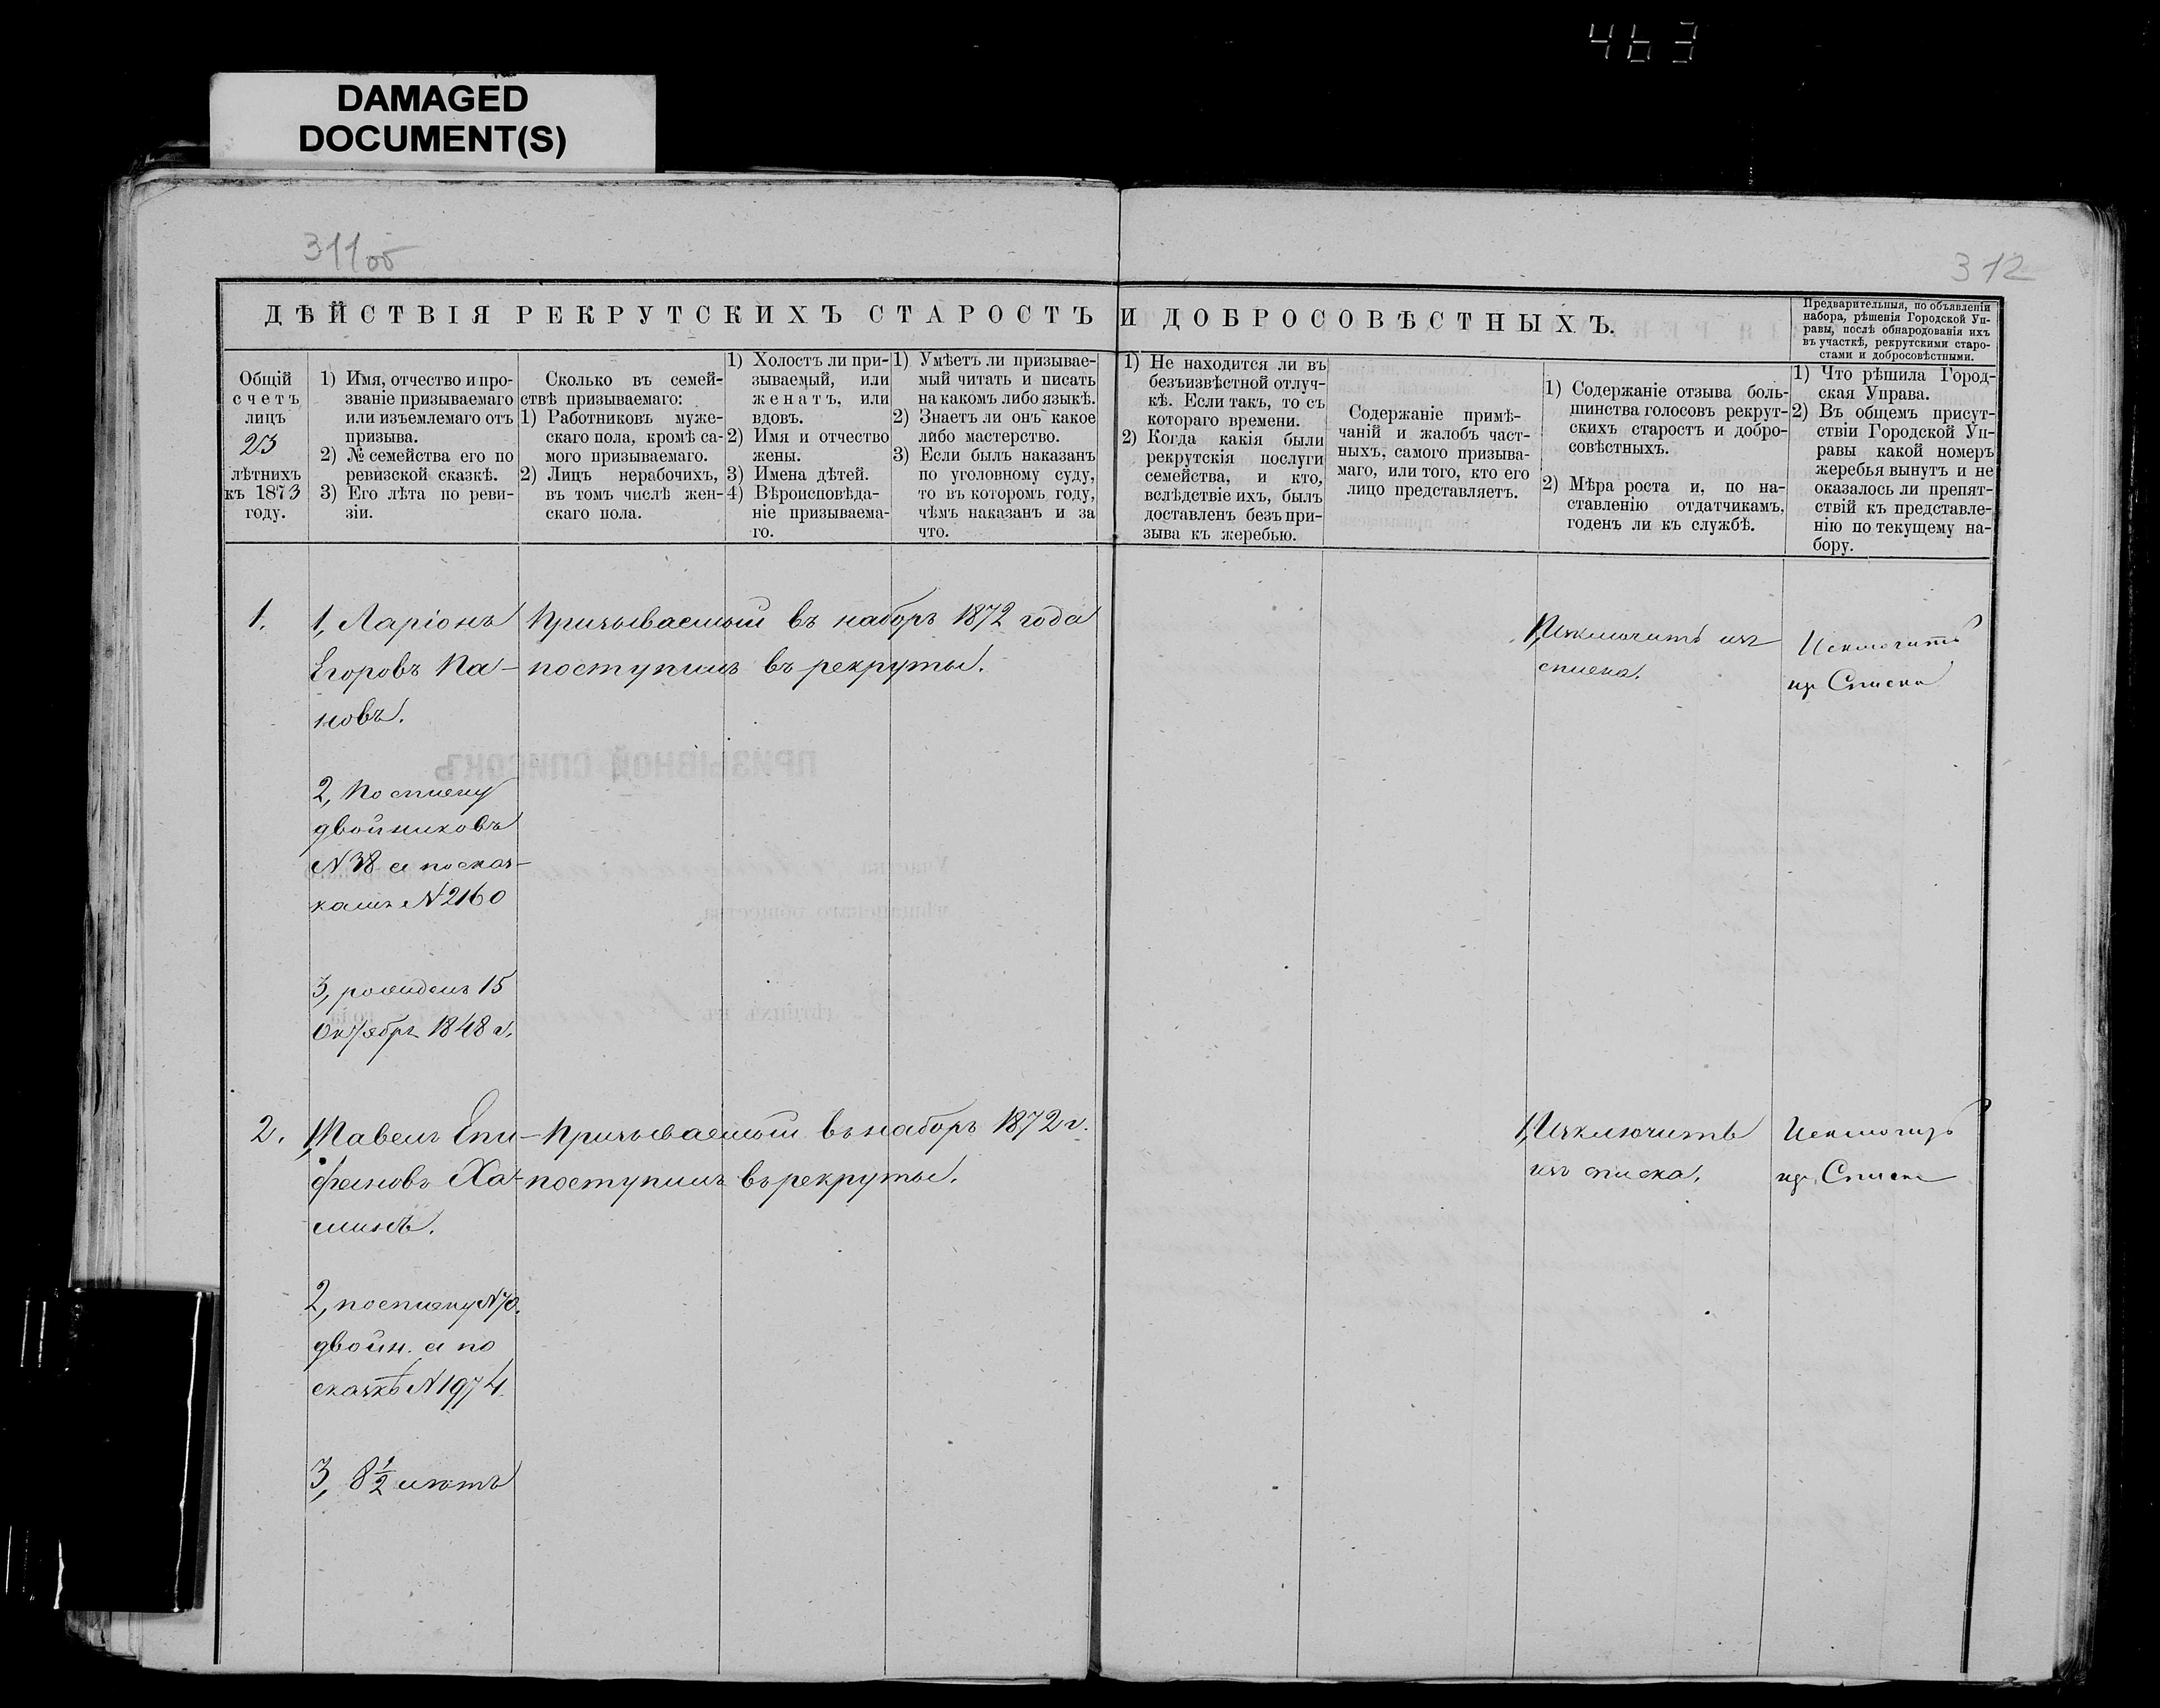 463
DAMAGED
DOCUMENT(S)
311об
312
ДѢЙСТВІЯ РЕКРУТСКИХЪ СТАРОСТЪ И ДОБРОСОВѢСТНЫХЪ.
Предварительныя, по объявленіи
набора, рѣшенія Городской Уп-
равы, послѣ обнародованія ихъ
въ участкѣ, рекрутскими старо-
стами и добросовѣстными.
Общій
счетъ
лицъ
23
лѣтнихъ
къ 1873
году.
1) Имя, отчество и про-
званіе призываемаго
или изъемлемаго отъ
призыва.
2) № семейства его по
ревизской сказкѣ.
3) Его лѣта по реви-
зіи.
Сколько въ семей-
ствѣ призываемаго:
1) Работниковъ муже-
скаго пола, кромѣ са-
мого призываемаго.
2) Лицъ нерабочихъ,
въ томъ числѣ жен-
скаго пола.
1) Холостъ ли при-
зываемый, или
женатъ, или
вдовъ.
2) Имя и отчество
жены.
3) Имена дѣтей.
4) Вѣроисповѣда-
ніе призываема-
го.
1) Умѣетъ ли призывае-
мый читать и писать
на какомъ либо языкѣ.
2) Знаетъ ли онъ какое
либо мастерство.
3) Если былъ наказанъ
по уголовному суду,
то въ которомъ году,
чѣмъ наказанъ и за
что.
1) Не находится ли въ
безъизвѣстной отлуч-
кѣ. Если такъ, то съ
котораго времени.
2) Когда какія были
рекрутскія послуги
семейства, и кто,
вслѣдствіе ихъ, былъ
доставленъ безъ при-
зыва къ жеребью.
Содержаніе примѣ-
чаній и жалобъ част-
ныхъ, самого призыва-
маго, или того, кто его
лицо представляетъ.
1) Содержаніе отзыва боль-
шинства голосовъ рекрут-
скихъ старостъ и добро-
совѣстныхъ.
2) Мѣра роста и, по на-
ставленію отдатчикамъ,
годенъ ли къ службѣ.
1) Что рѣшила Город-
ская Управа.
2) Въ общемъ присут-
ствіи Городской Уп-
равы какой номеръ
жеребья вынутъ и не
оказалось ли препят-
ствій къ представле-
нію по текущему на-
бору.
1.
1, Ларіонъ
Егоровъ Па-
новъ.
2, По списку
двойниковъ
N 38 а по сказ-
камъ N 2160
3, рожденъ 15
Октября 1848 г.
Призываемый въ наборъ 1872 года
поступилъ въ рекруты.
1, Изключить изъ
списка.
Исключить
изъ Списка
2.
1, Павелъ Епи-
фановъ Ха-
минъ.
2, по списку N 70.
двойн. а по
сказкѣ N 1974.
3, 8½ лѣтъ
Призываемый въ наборъ 1872 г.
поступилъ въ рекруты.
1, Изключить
изъ списка.
Исключить
изъ Списка